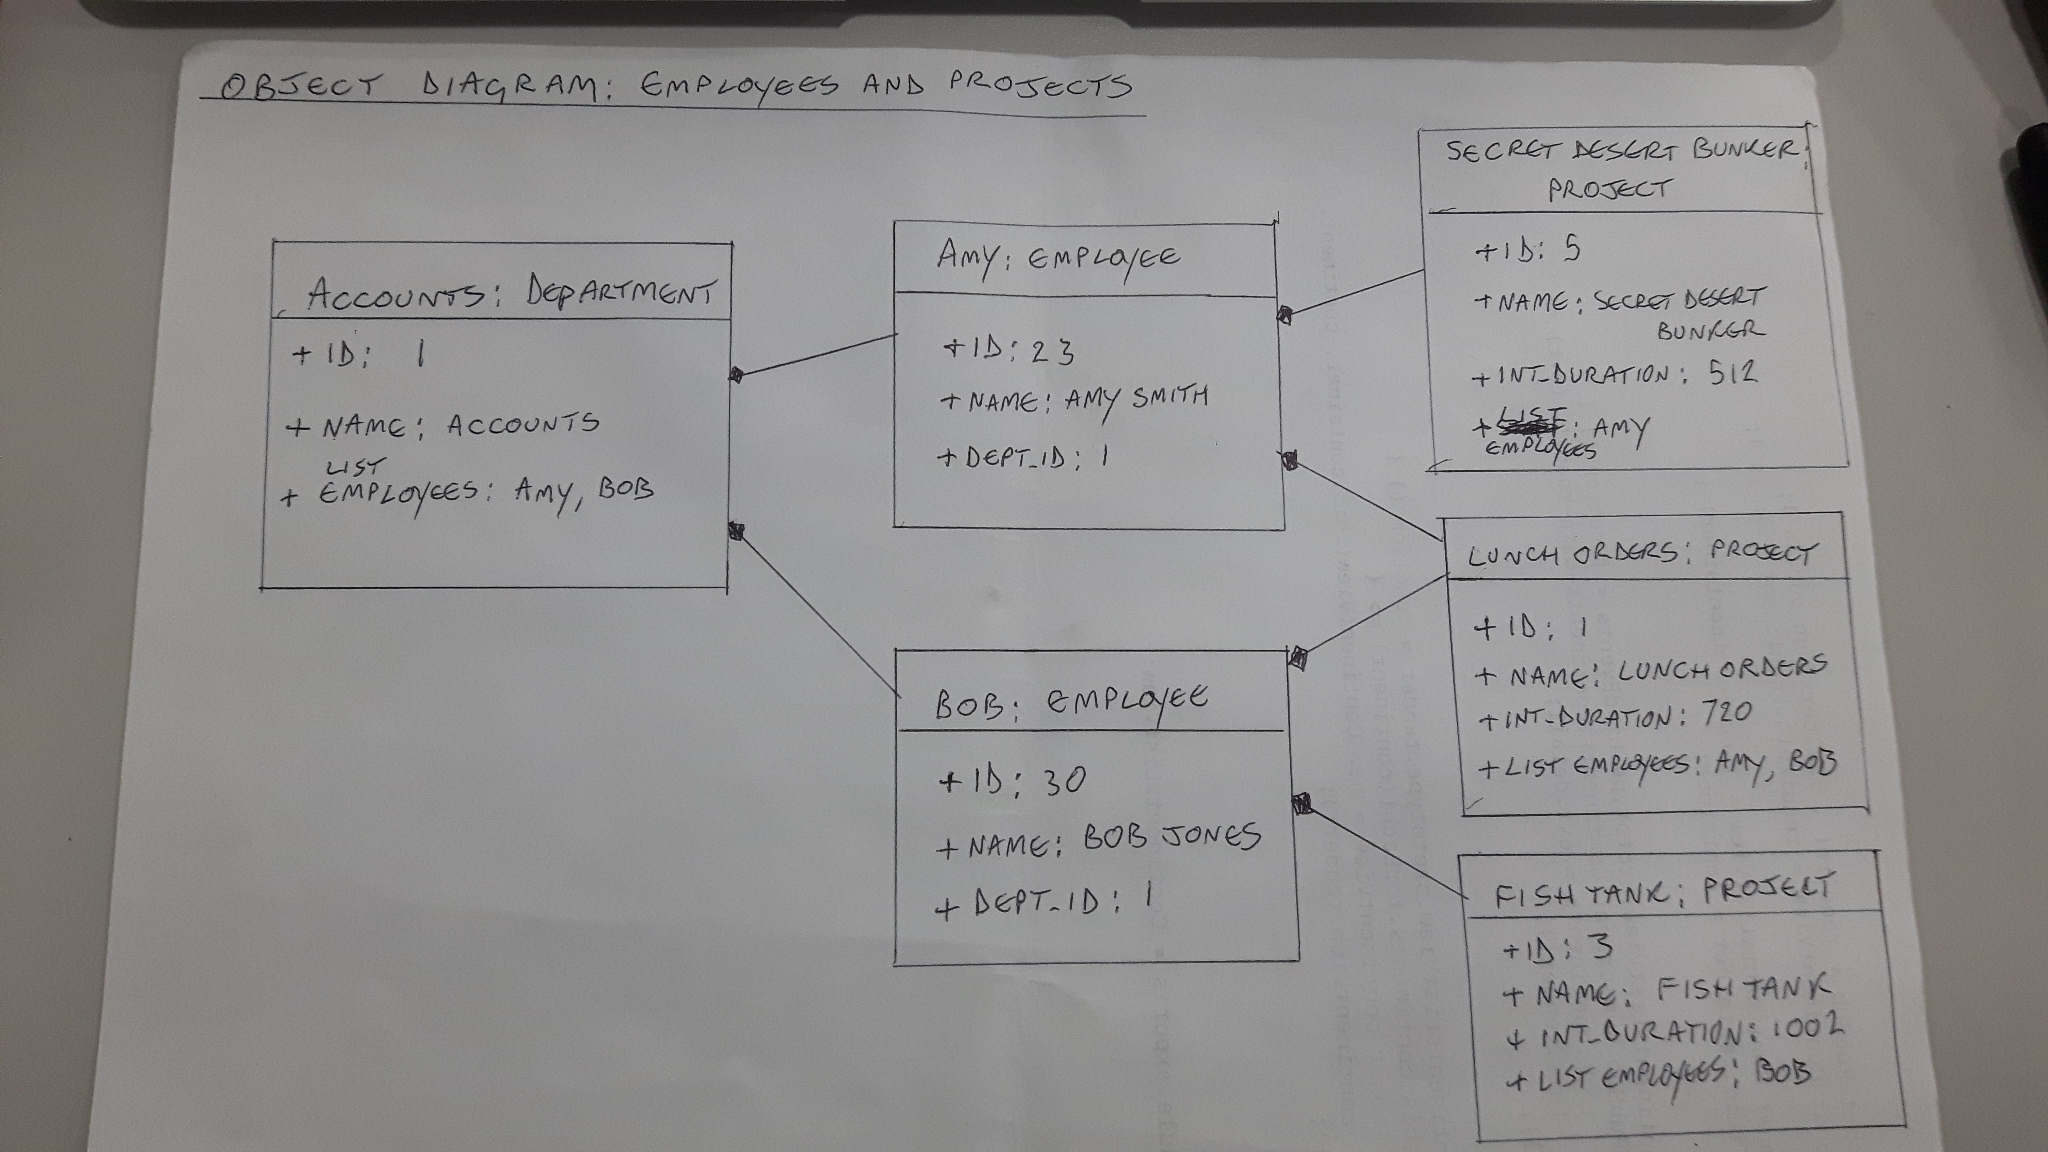 OBJECT DIAGRAM: EMPLOYEES AND PROJECTS
ACCOUNTS: DEPARTMENT
+ ID: 1
+ NAME: ACCOUNTS
LIST
+ EMPLOYEES: AMY, BOB
AMY: EMPLOYEE
+ ID: 23
+ NAME: AMY SMITH
+ DEPT_ID: 1
BOB: EMPLOYEE
+ ID: 30
+ NAME: BOB JONES
+ DEPT_ID: 1
SECRET DESERT BUNKER:
PROJECT
+ ID: 5
+ NAME: SECRET DESERT
BUNKER
+ INT_DURATION: 512
+ LIST : AMY
EMPLOYEES
LUNCH ORDERS: PROJECT
+ ID: 1
+ NAME: LUNCH ORDERS
+ INT_DURATION: 720
+ LIST EMPLOYEES: AMY, BOB
FISH TANK: PROJECT
+ ID: 3
+ NAME: FISH TANK
+ INT_DURATION: 1002
+ LIST EMPLOYEES: BOB